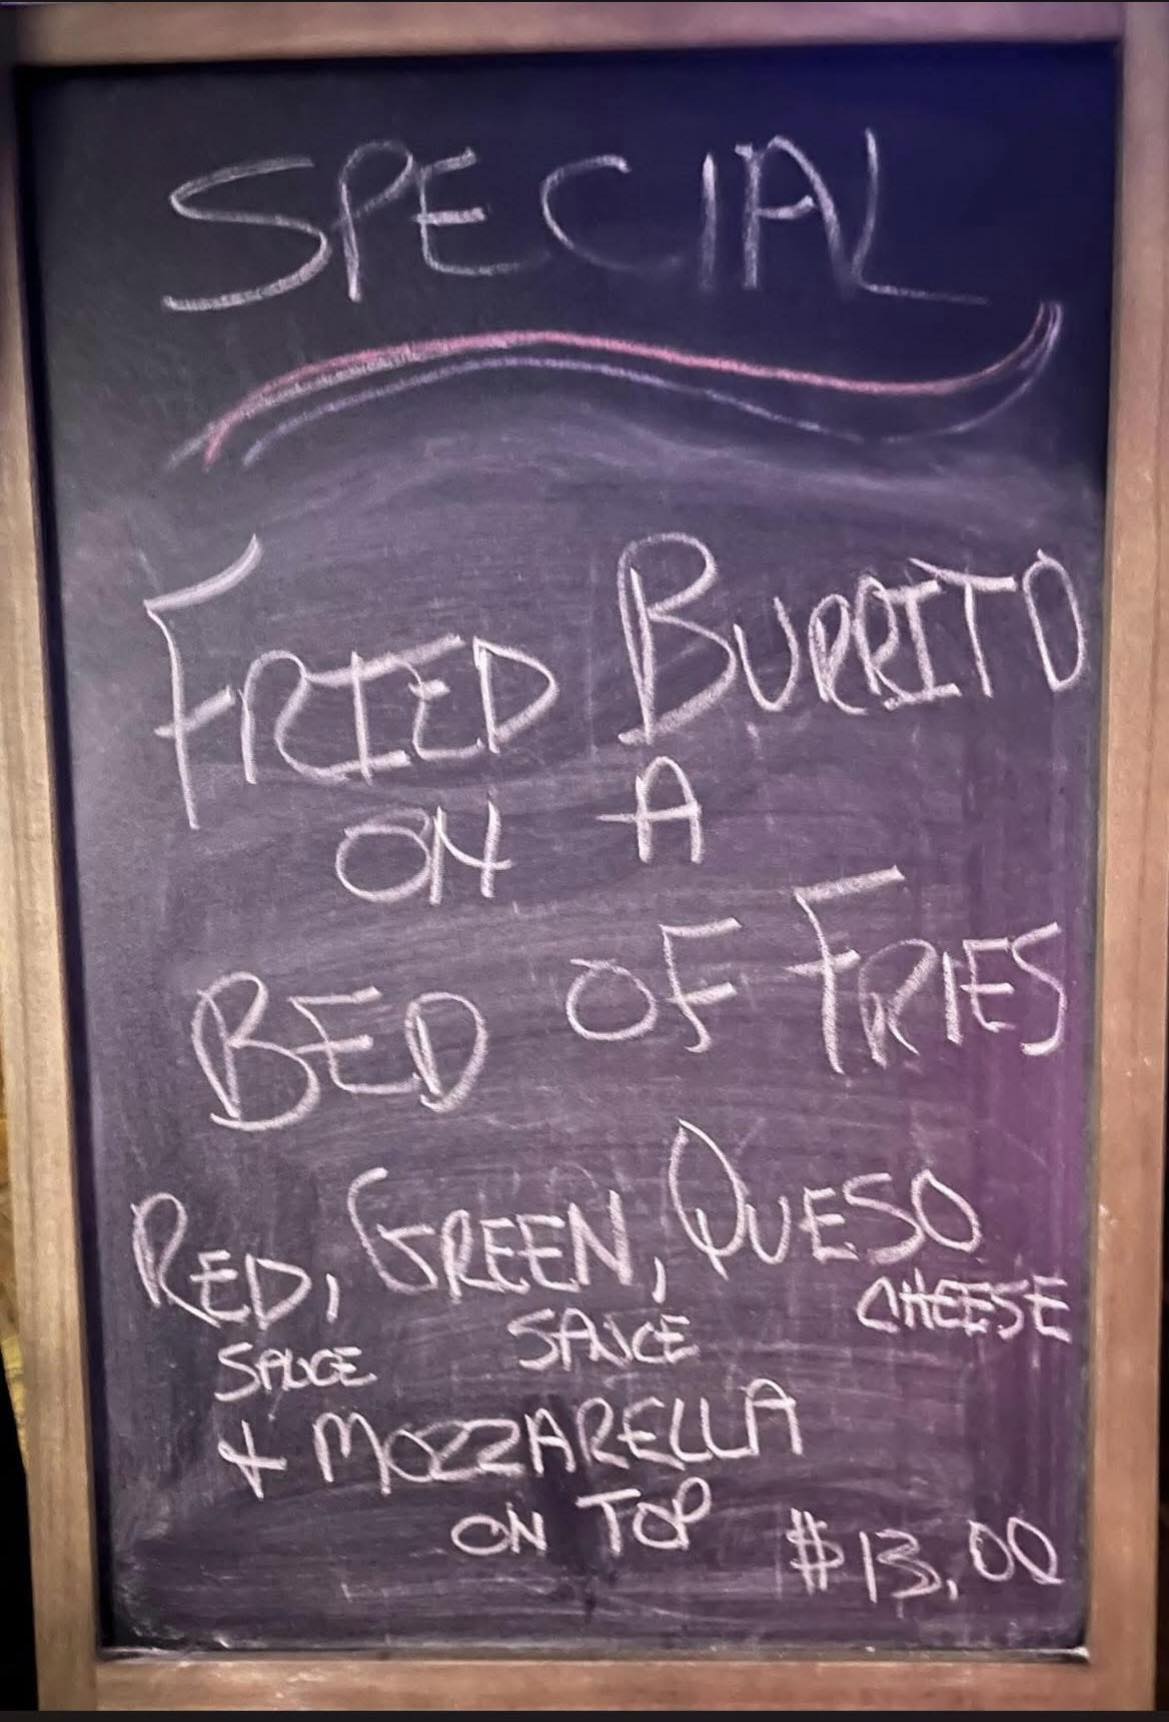 SPECIAL
FRIED BURRITO
ON A
BED OF FRIES
RED, GREEN, QUESO
SAUCE SAUCE CHEESE
+ MOZZARELLA
ON TOP
$13.00